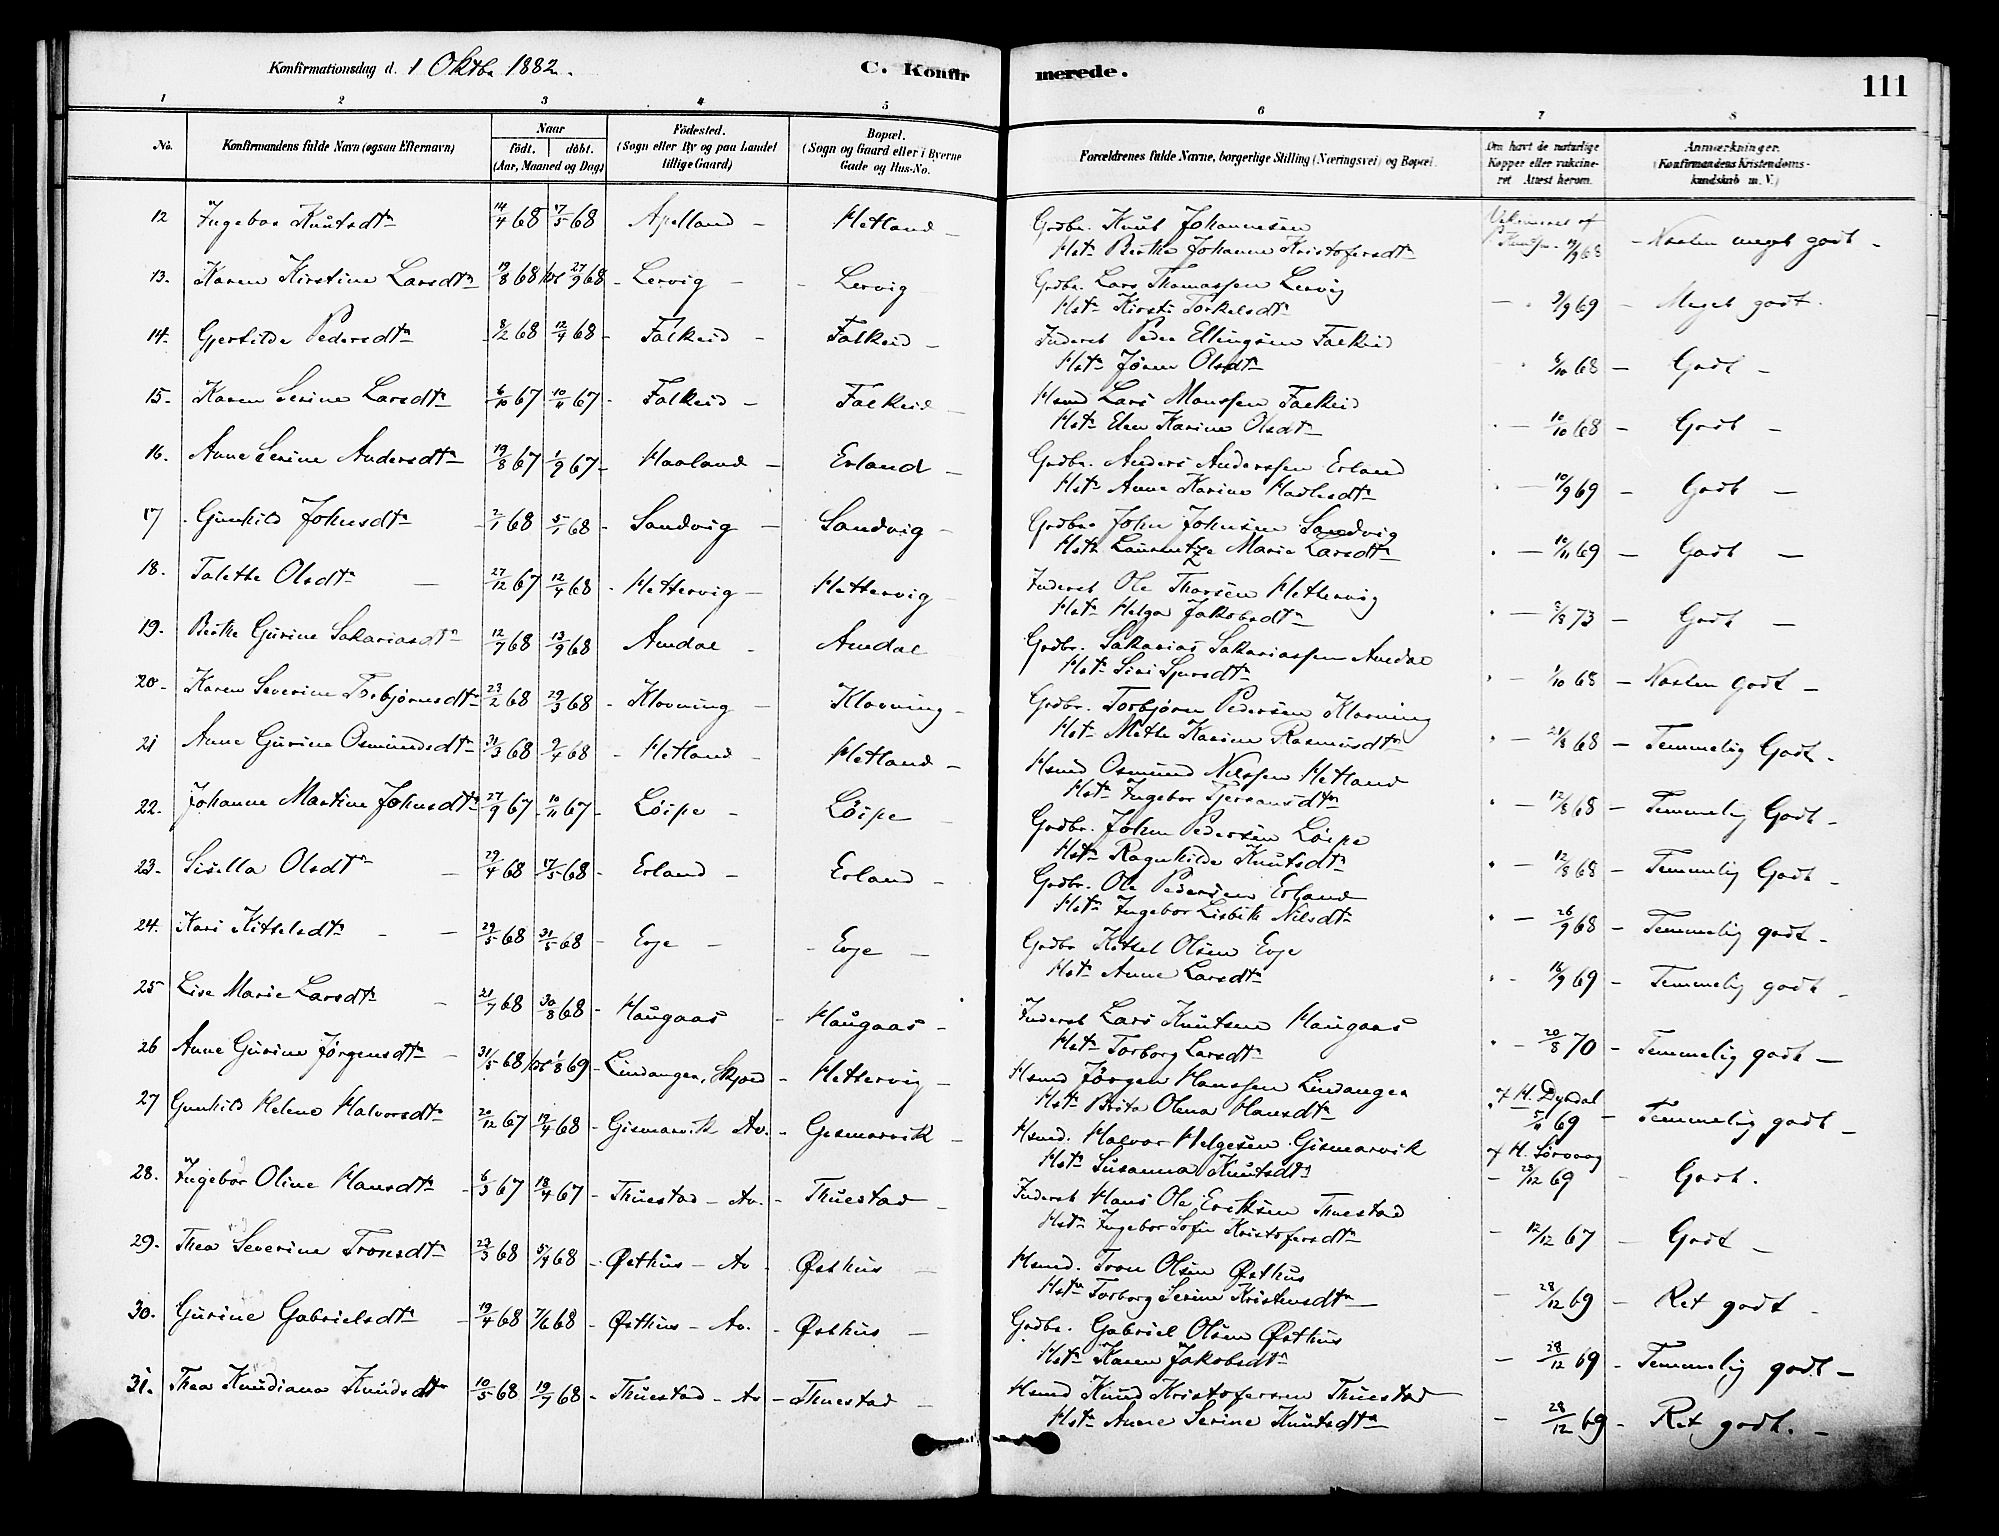 Konfirmationsdag d. 1 Oktbr 1882.
C. Konfirmerede.
111
1 2 3 4 5 6 7 8
No.
Konfirmandens fulde Navn (ogsaa Efternavn)
Naar
födt. döbt.
(Aar, Maaned og Dag)
Födested.
(Sogn eller By og paa Landet tillige Gaard)
Bopæl.
(Sogn og Gaard eller i Byerne Gade og Hus-No.
Forældrenes fulde Navne, borgerlige Stilling (Næringsvei) og Bopæl.
Om havt de naturlige Kopper eller vakcineret Attest herom.
Anmærkninger.
(Konfirmandens Kristendomskundskab m. V.)
12 Ingebor Knutsdtr 14/4 68 17/5 68 Apelland - Hetland - Grdbr. Knut Johannesen
Hst. Berthe Johanne Kristofersdtr 9/68 - Næsten meget godt -
13. Karen Kirstine Larsdtr 19/8 68 27/9 68 - Lervig - - Lervig Grdbr. Lars Thomassen Lervig
Hst. Kirsti Torkelsdtr 9/9 69 - Meget godt.
14. Gjertilde Pedersdtr 8/2 68 12/4 68 - Falkeid - Falkeid - Inderst Peder Ellingsen Falkeid
Hst. Jøren Olsdtr 6/10 68 - Godt -
15. Karen Serine Larsdtr 6/10 67 10/11 67 - Falkeid - Falkeid - Hsmd Lars Monssen Falkeid
Hst. Elen Karine Olsdtr 10/10 68 - Godt -
16. Anne Serine Andersdtr 19/8 67 1/9 67 - Haaland - Erland - Grdbr. Anders Anderssen Erland
Hst. Anne Karine Hadlesdtr 10/9 69 - Godt -
17. Gunhild Johnsdtr 2/1 68 5/1 68 - Sandvig - Sandvig - Grdbr. John Johnsen Sandvig
Hst. Laurentze Marie Larsdtr 10/11 69 - Godt -
18. Talette Olsdtr - 27/12 67 12/4 68 - Hettervig - Hettervig - Inderst Ole Thorsen Hettervig
Hst. Helga Jakobsdtr 8/8 73 - Godt -
19. Berthe Gurine Sakariasdtr 12/7 68 13/9 68 - Amdal - Amdal Grdbr. Sakarias Sakariassen Amdal
Hst. Siri Sjursdtr 1/10 68 - Næsten godt -
20. Karen Severine Torbjørnsdtr 23/2 68 29/3 68 - Klovning - Klovning - Grdbr. Torbjørn Pedersen Klovning
Hst. Mette Karine Rasmusdtr 21/8 68 - Temmelig Godt.
21 Anne Gurine Osmundsdtr 31/3 68 9/4 68 - Hetland - Hetland - Hsmd Osmund Nilssen Hetland
Hst. Ingebor 12/8 68 - Temmelig Godt -
22. Johanne Martine Johnsdtr 27/9 67 10/11 67 - Löipe - Löipe Grdbr. John Pedersen Löipe
Hst. Ragnhilde Knutsdtr 12/8 68 - Temmelig Godt -
23. Sisella Olsdtr - 29/4 68 17/5 68 - Erland - Erland - Grdbr. Ole Pedersen Erland
Hst. Ingebor Lisbet Nilsdtr 26/9 68 - Temmelig godt -
24. Kari Kittelsdtr - 29/5 68 31/5 68 - Evje - - Evje - Grdbr Kittel Olsen Evje
Hst. Anne Larsdtr 16/9 69 - Temmelig godt -
25 Lise Marie Larsdtr - 21/7 68 30/8 68 - Haugaas - Haugaas - Inderst Lars Knutsen Haugaas
Hst. Torborg Larsdtr 20/8 70 - Temmelig godt -
26 Anne Gurine Jørgensdtr - 31/5 68 1/8 69 - Lindanger, Skjold - Hettervig - Hsmd Jørgen Hanssen Lindanger
Hst. Brita Olena Hansdtr af H. Dybdal 5/11 69 - Temmelig godt -
27 Gunhild Helene Halvorsdtr 20/12 67 19/4 68 - Gismarvik Av. - Gismarvik - Hsmd. Halvor Helgesen Gismarvik
Hst. Susanna Knutsdtr af H. Sörvaag 28/12 69 - Godt.
28. Ingebor Oline Hansdtr 6/3 67 18/4 67 - Thuestad - Av. - Thuestad - Inderst Hans Ole Eriksen Thuestad
Hst. Ingebor Sofie Kristofersdtr 12/12 67 - Godt -
29. Thea Severine Tronsdtr 23/3 68 5/7 68 - Østhus - Av - Østhus - Hsmd. Tron Olsen Østhus
Hst. Torborg Serine Kristensdtr 28/12 69 - Ret godt -
30. Gurine Gabrielsdtr - 19/4 68 7/6 68 - Østhus - Av. - Østhus - Grdbr. Gabriel Olsen Østhus
Hst. Karen Jakobsdtr 28/12 69 - Temmelig godt -
31. Thea Knudiana Knudsdtr 10/5 68 19/7 68 - Thuestad - Av - Thuestad - Hsmd Knud Kristofersen Thuestad
Hst. Anne Serine Knutsdtr 28/12 69 - Ret godt. -